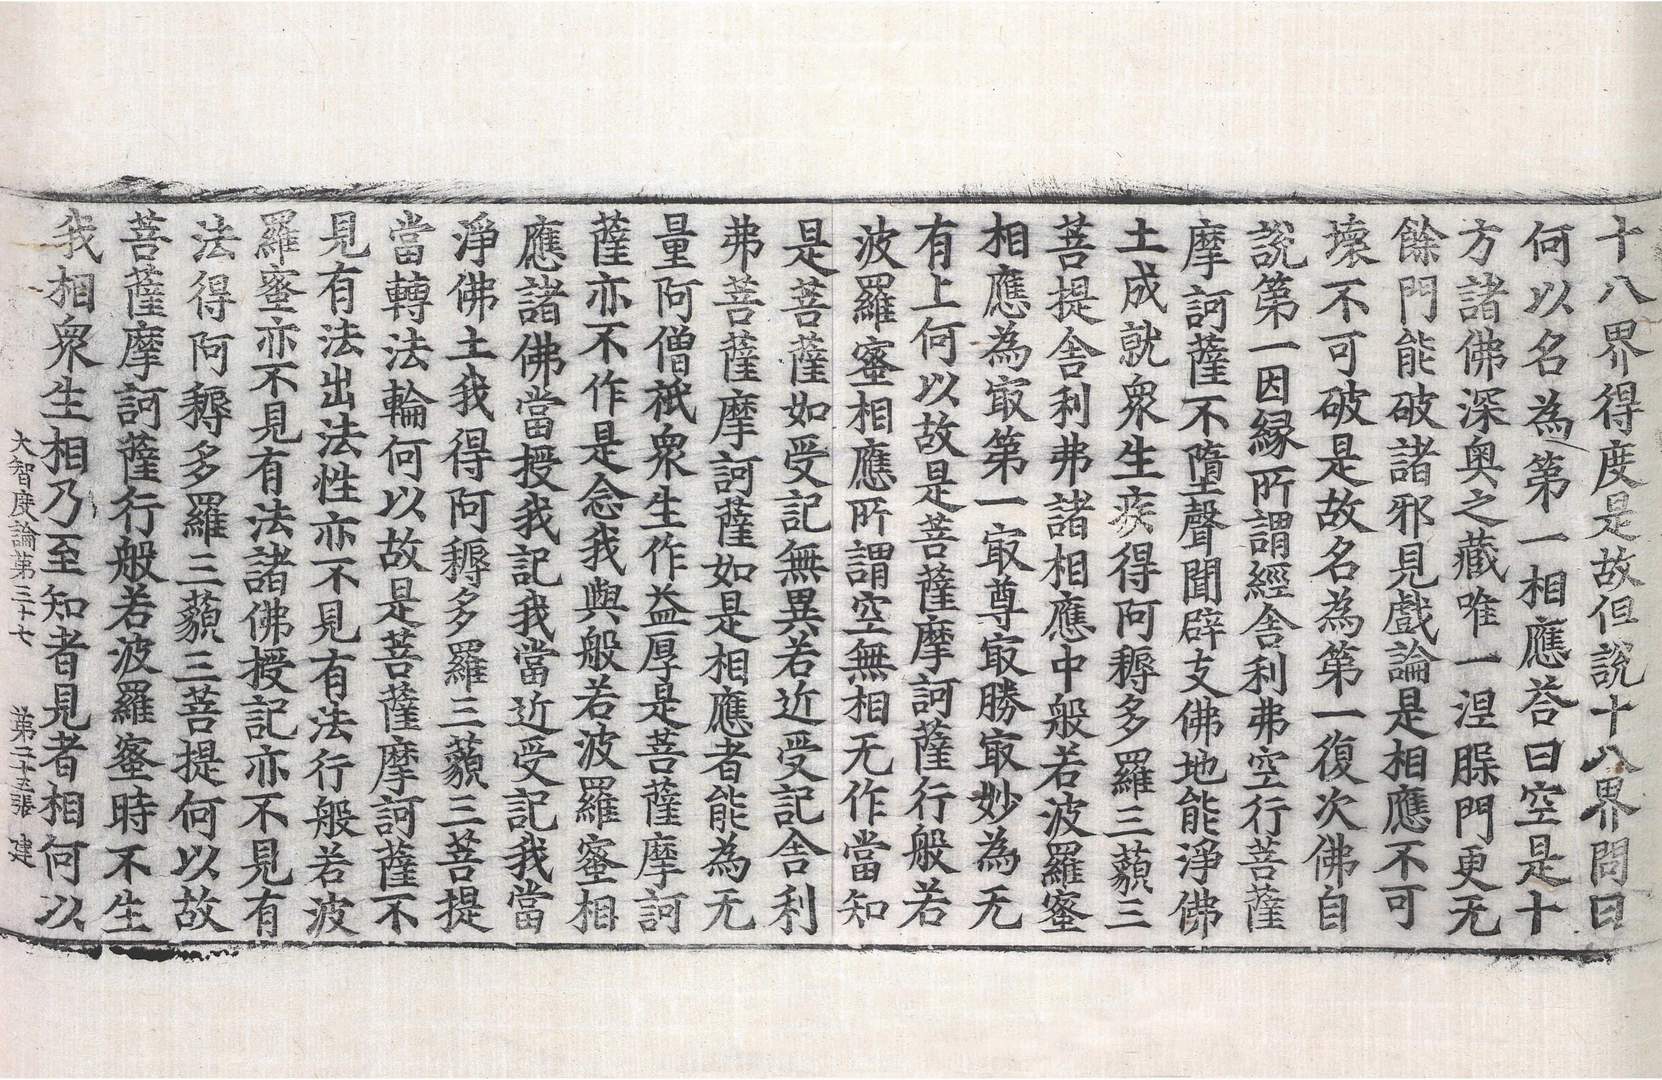 十八界得度是故但說十八界問曰
何以名為第一相應荅曰空是十
方諸佛深奧之藏唯一涅脲門更无
餘門能破諸邪見戲論是相應不可
壞不可破是故名為第一復次佛自
說第一因緣所謂經舍利弗空行菩薩
摩訶薩不墮聲聞辟支佛地能淨佛
土成就衆生疾得阿耨多羅三藐三
菩提舍利弗諸相應中般若波羅蜜
相應為㝡第一㝡尊㝡勝㝡妙為无
有上何以故是菩薩摩訶薩行般若
波羅蜜相應所謂空無相无作當知
是菩薩如受記無異若近受記舍利
弗菩薩摩訶薩如是相應者能為无
量阿僧祇衆生作益厚是菩薩摩訶
薩亦不作是念我與般若波羅蜜相
應諸佛當授我記我當近受記我當
淨佛土我得阿耨多羅三藐三菩提
當轉法輪何以故是菩薩摩訶薩不
見有法出法性亦不見有法行般若波
羅蜜亦不見有法諸佛授記亦不見有
法得阿耨多羅三藐三菩提何以故
菩薩摩訶薩行般若波羅蜜時不生
我相衆生相乃至知者見者相何以
大智度論第三十七 第二十五張 建